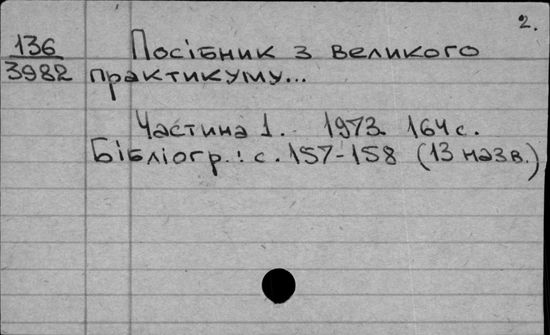 2.
136 Посібник з великого
3982 практикуму...
Частина 1. 1973. 164 с.
Бібліогр.: с. 157-158 (13 назв.)